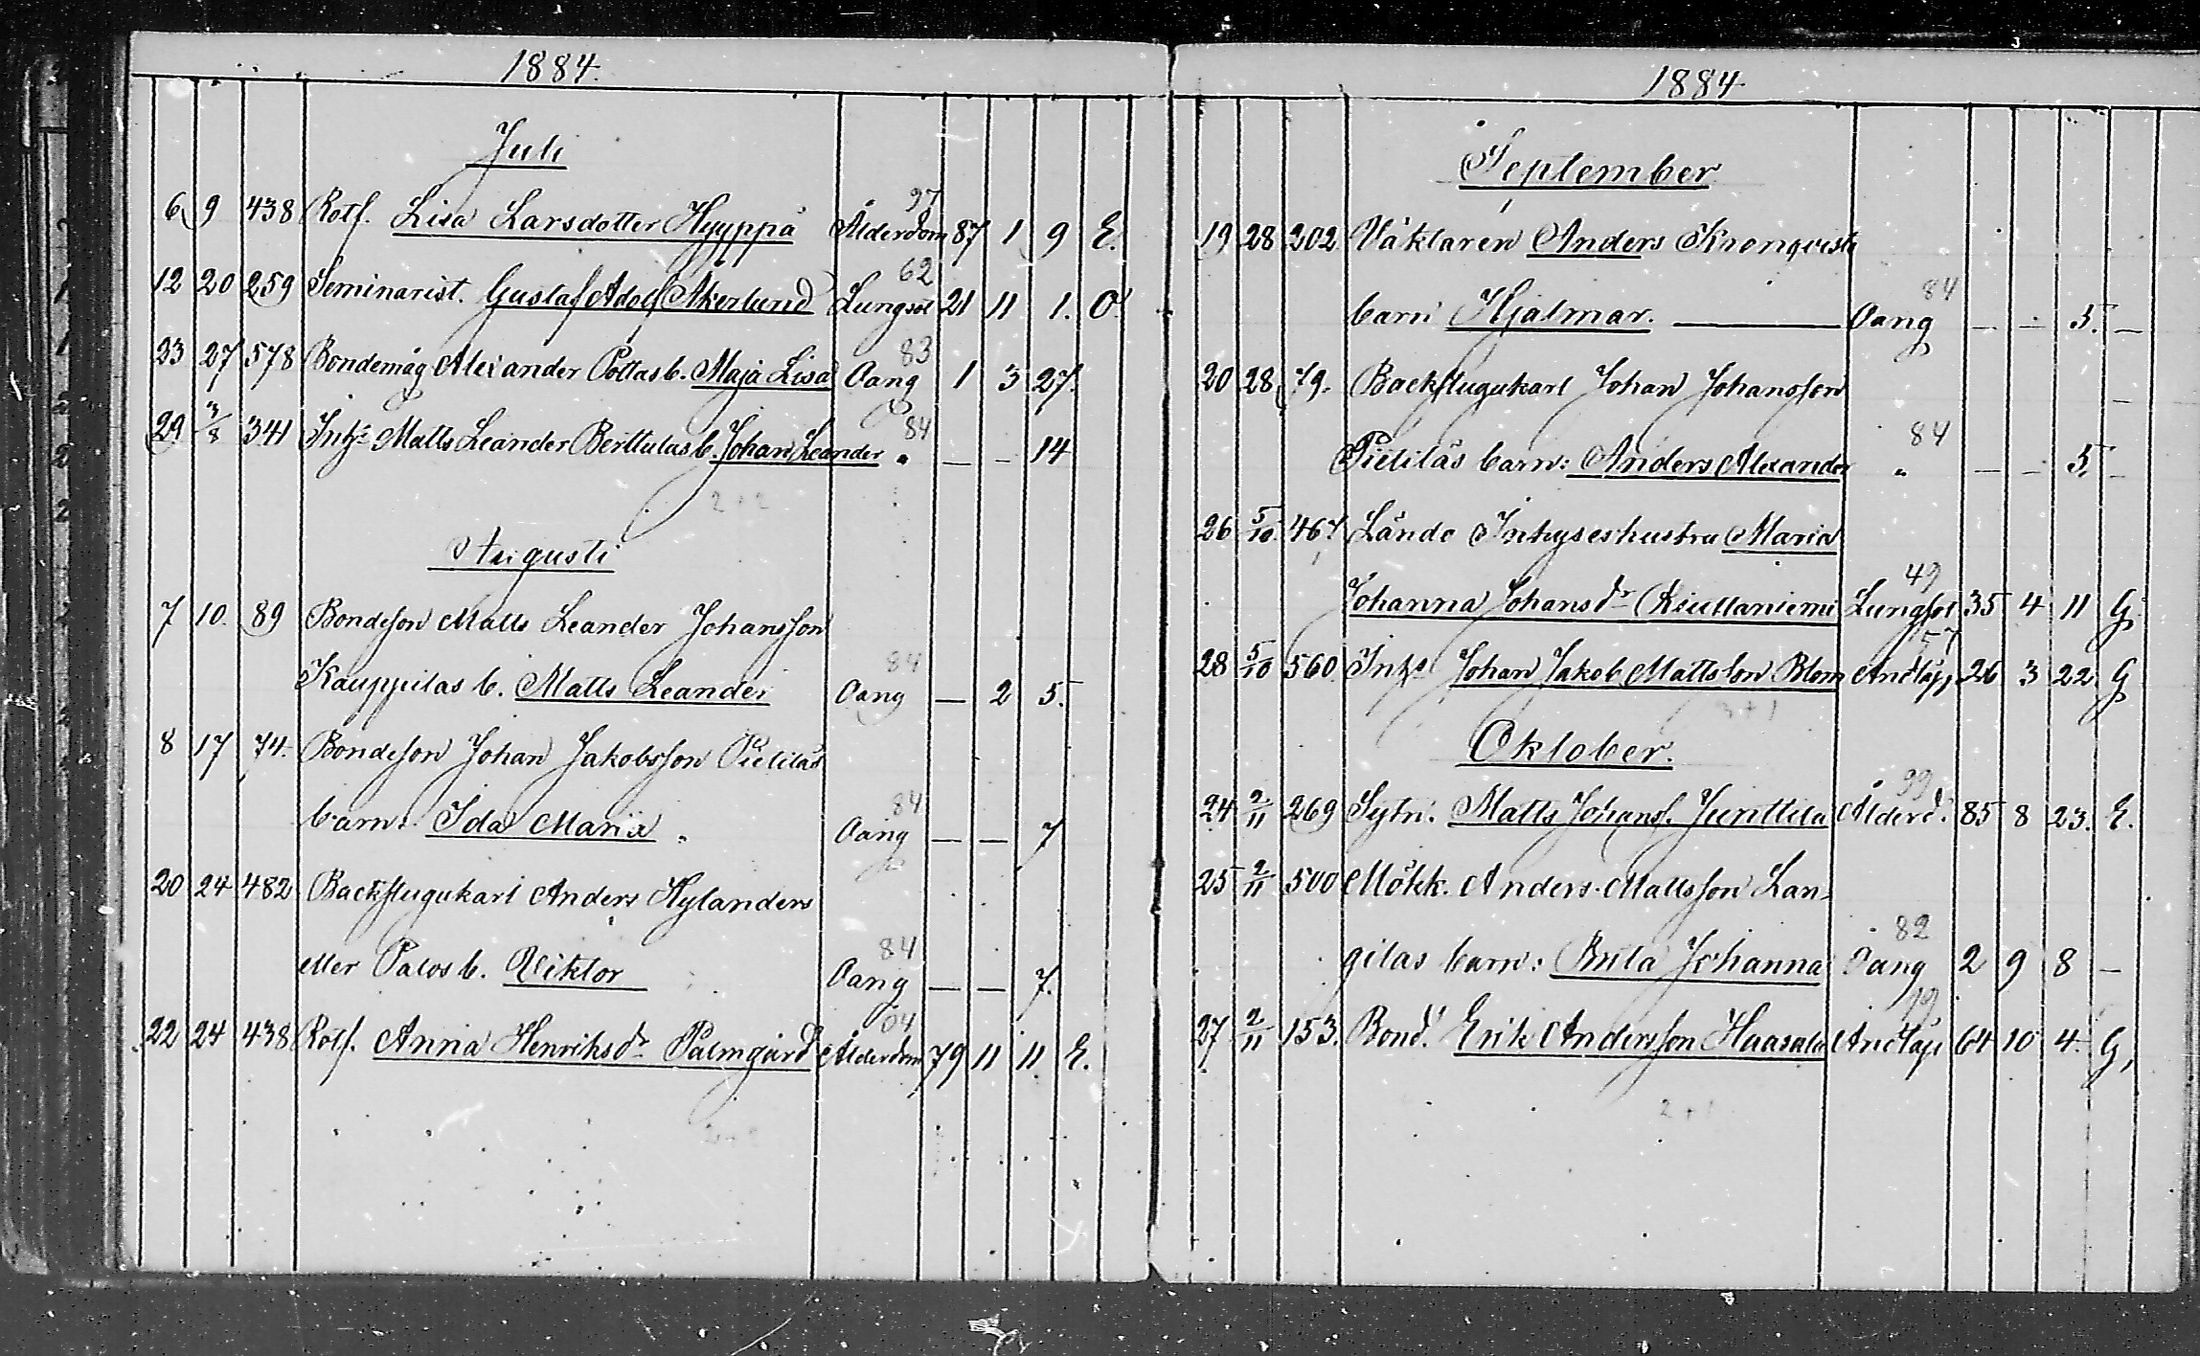 1884.
Juli
97
6 9 438 Rotf. Lisa Larsdotter Hyyppä Ålderdom 87 1 9 E.
62
12 20 259 Seminarist. Gustaf Adolf Åkerlund Lungsot 21 11 1. O.
83
23 27 578 Bondemåg Alexander Pottas b. Maja Lisa Oang 1 3 27.
84
29 3/8 341 Inhs Matts Leander Berttulas b. Johan Leander " — — 14
2+2
Augusti
7 10. 89 Bondeson Matts Leander Johansson
84
Kauppilas b. Matts Leander Oang — 2 5.
8 17 74. Bondeson Johan Jakobsson Pietiläs
84
barn: Ida Maria " Oang — — 7
20 24 482 Backstugukarl Anders Hylanders
84
eller Palos b. Viktor Oang — — 7.
04
22 24 438 Rotf. Anna Henriksdr Palmgård Ålderdom 79 11 11 E.
1884
September
19 28 202 Anders Kronqvists
84
barn Hjalmar. — Oang — — 5. —
20 28 79. Backstugukarl Johan Johansson
84
Pietiläs barn: Anders Alexander " — — 5. —
26 5/10 467 Lände Inhyseshustru Maria
49
Johanna Johansdr Kiuttaniemi Lungsot 35 4 11 G.
57
28 5/10 560 Inhs Johan Jakob Mattsson Blom Andtäp. 26 3 22. G
3+1
Oktober.
99
24 2/11 269 Sytn. Matts Johanss. Junttila Ålderd. 85 8 23. E.
25 2/11 500 Mökk. Anders Mattsson Lan-
82
gilas barn: Brita Johanna Oang 2 9 8 —
19
27 2/11 153. Bond. Erik Andersson Haasala Andtäp 64 10 4. G,
2+1